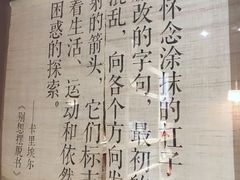 怀念涂抹的红字
改的字句，最初
混乱，向各个方向发
射的箭头，它们标
着生活、运动和依然
困惑的探索。
——卡里埃尔
《别想摆脱书》